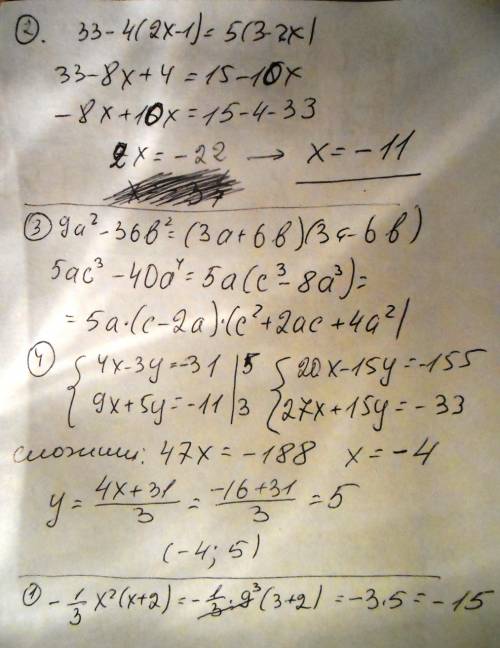 2. 33-4(2x-1)=5(3-2x)
33-8x+4=15-10x
-8x+10x=15-4-33
2x=-22 → x=-11
3 9a²-36в²=(3a+6в)(3a-6в)
5ac³-40a⁴=5a(c³-8a³)=
=5a·(c-2a)·(c²+2ac+4a²)
4 { 4x-3y=-31 | 5 { 20x-15y=-155
9x+5y=-11 | 3 27x+15y=-33
сложили: 47x=-188 x=-4
y=(4x+31)/3=(-16+31)/3=5
(-4; 5)
1 -1/3 x²(x+2)=-1/3·9³(3+2)=-3·5=-15